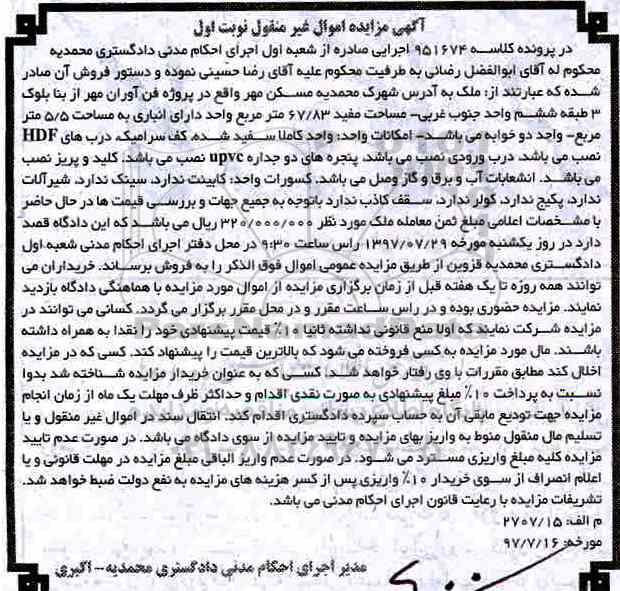 آگهی مزایده اموال غیر منقول نوبت اول
در پرونده کلاسه ۹۵۱۶۷۴ اجرایی صادره از شعبه اول اجرای احکام مدنی دادگستری محمدیه
محکوم له آقای ابوالفضل رضائی به طرفیت محکوم علیه آقای رضا حسینی نموده و دستور فروش آن صادر
شده که عبارتند از: ملک به آدرس شهرک محمدیه مسکن مهر واقع در پروژه فن آوران مهر از بنا بلوک
۳ طبقه ششم واحد جنوب غربی- مساحت مفید ۶۷/۸۳ متر مربع واحد دارای انباری به مساحت ۵/۵ متر
مربع- واحد دو خوابه می باشد- امکانات واحد: واحد کاملا سفید شده، کف سرامیک، درب های HDF
نصب می باشد، درب ورودی نصب می باشد، پنجره های دو جداره upvc نصب می باشد. کلید و پریز نصب
می باشد. انشعابات آب و برق و گاز وصل می باشد. کسورات واحد: کابینت ندارد، سینک ندارد، شیرآلات
ندارد، پکیج ندارد، کولر ندارد، سقف کاذب ندارد باتوجه به جمیع جهات و بررسی قیمت ها در حال حاضر
با مشخصات اعلامی مبلغ ثمن معامله ملک مورد نظر ۳۲۰/۰۰۰/۰۰۰ ریال می باشد که این دادگاه قصد
دارد در روز یکشنبه مورخه ۱۳۹۷/۰۷/۲۹ راس ساعت ۹:۳۰ در محل دفتر اجرای احکام مدنی شعبه اول
دادگستری محمدیه قزوین از طریق مزایده عمومی اموال فوق الذکر را به فروش برساند. خریداران می
توانند همه روزه تا یک هفته قبل از زمان برگزاری مزایده از اموال مورد مزایده با هماهنگی دادگاه بازدید
نمایند. مزایده حضوری بوده و در راس ساعت مقرر و در محل مقرر برگزار می گردد. کسانی می توانند در
مزایده شرکت نمایند که اولا منع قانونی نداشته ثانیا ۱۰٪ قیمت پیشنهادی خود را نقدا به همراه داشته
باشند. مال مورد مزایده به کسی فروخته می شود که بالاترین قیمت را پیشنهاد کند. کسی که در مزایده
اخلال کند مطابق مقررات با وی رفتار خواهد شد، کسی که به عنوان خریدار مزایده شناخته شد بدوا
نسبت به پرداخت ۱۰٪ مبلغ پیشنهادی به صورت نقدی اقدام و حداکثر ظرف مهلت یک ماه از زمان انجام
مزایده جهت تودیع مابقی آن به حساب سپرده دادگستری اقدام کند. انتقال سند در اموال غیر منقول و یا
تسلیم مال منقول منوط به واریز بهای مزایده و تایید مزایده از سوی دادگاه می باشد. در صورت عدم تایید
مزایده کلیه مبلغ واریزی مسترد می شود. در صورت عدم واریز الباقی مبلغ مزایده در مهلت قانونی و یا
اعلام انصراف از سوی خریدار ۱۰٪ واریزی پس از کسر هزینه های مزایده به نفع دولت ضبط خواهد شد.
تشریفات مزایده با رعایت قانون اجرای احکام مدنی می باشد.
م الف: ۲۷۰۷/۱۵
مورخه: ۹۷/۷/۱۶
مدیر اجرای احکام مدنی دادگستری محمدیه- اکبری